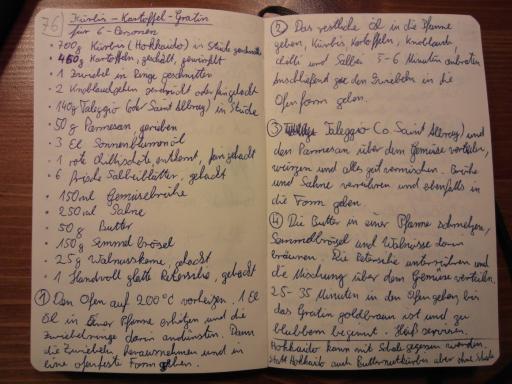 76
Kürbis-Kartoffel-Gratin
für 6 Personen
• 700g Kürbis (Hokkaido) in Stücke geschnitten
• 460g Kartoffeln, geschält, gewürfelt
• 1 Zwiebel in Ringe geschnitten
• 2 Knoblauchzehen zerdrückt oder fein gehackt
• 140g Taleggio (oder Saint Albray) in Stücke
• 50g Parmesan, gerieben
• 3 El Sonnenblumenöl
• 1 rote Chilischote entkernt, fein gehackt
• 6 frische Salbeiblätter, gehackt
• 150ml Gemüsebrühe
• 250ml Sahne
• 50g Butter
• 150g Semmelbrösel
• 25g Walnusskerne, gehackt
• 1 Handvoll glatte Petersilie, gehackt
① Den Ofen auf 200°C vorheizen. 1 El
Öl in einer Pfanne erhitzen und die
Zwiebelringe darin andünsten. Dann
die Zwiebeln herausnehmen und in
eine ofenfeste Form geben.
② Das restliche Öl in die Pfanne
geben, Kürbis, Kartoffeln, Knoblauch,
Chilli und Salbei 5-6 Minuten anbraten
Anschließend zu den Zwiebeln in die
Ofenform geben.
③ Taleggio (o Saint Albray) und
den Parmesan über dem Gemüse verteilen,
würzen und alles gut vermischen. Brühe
und Sahne verrühren und ebenfalls in
die Form geben.
④ Die Butter in einer Pfanne schmelzen,
Semmelbrösel und Walnüsse darin
bräunen. Die Petersilie unterrühren und
die Mischung über dem Gemüse verteilen.
25-35 Minuten in den Ofen geben bis
das Gratin goldbraun ist und zu
blubbern beginnt. Heiß servieren.
Hokkaido kann mit Schale gegessen werden.
Statt Hokkaido auch Butternutkürbis aber ohne Schale